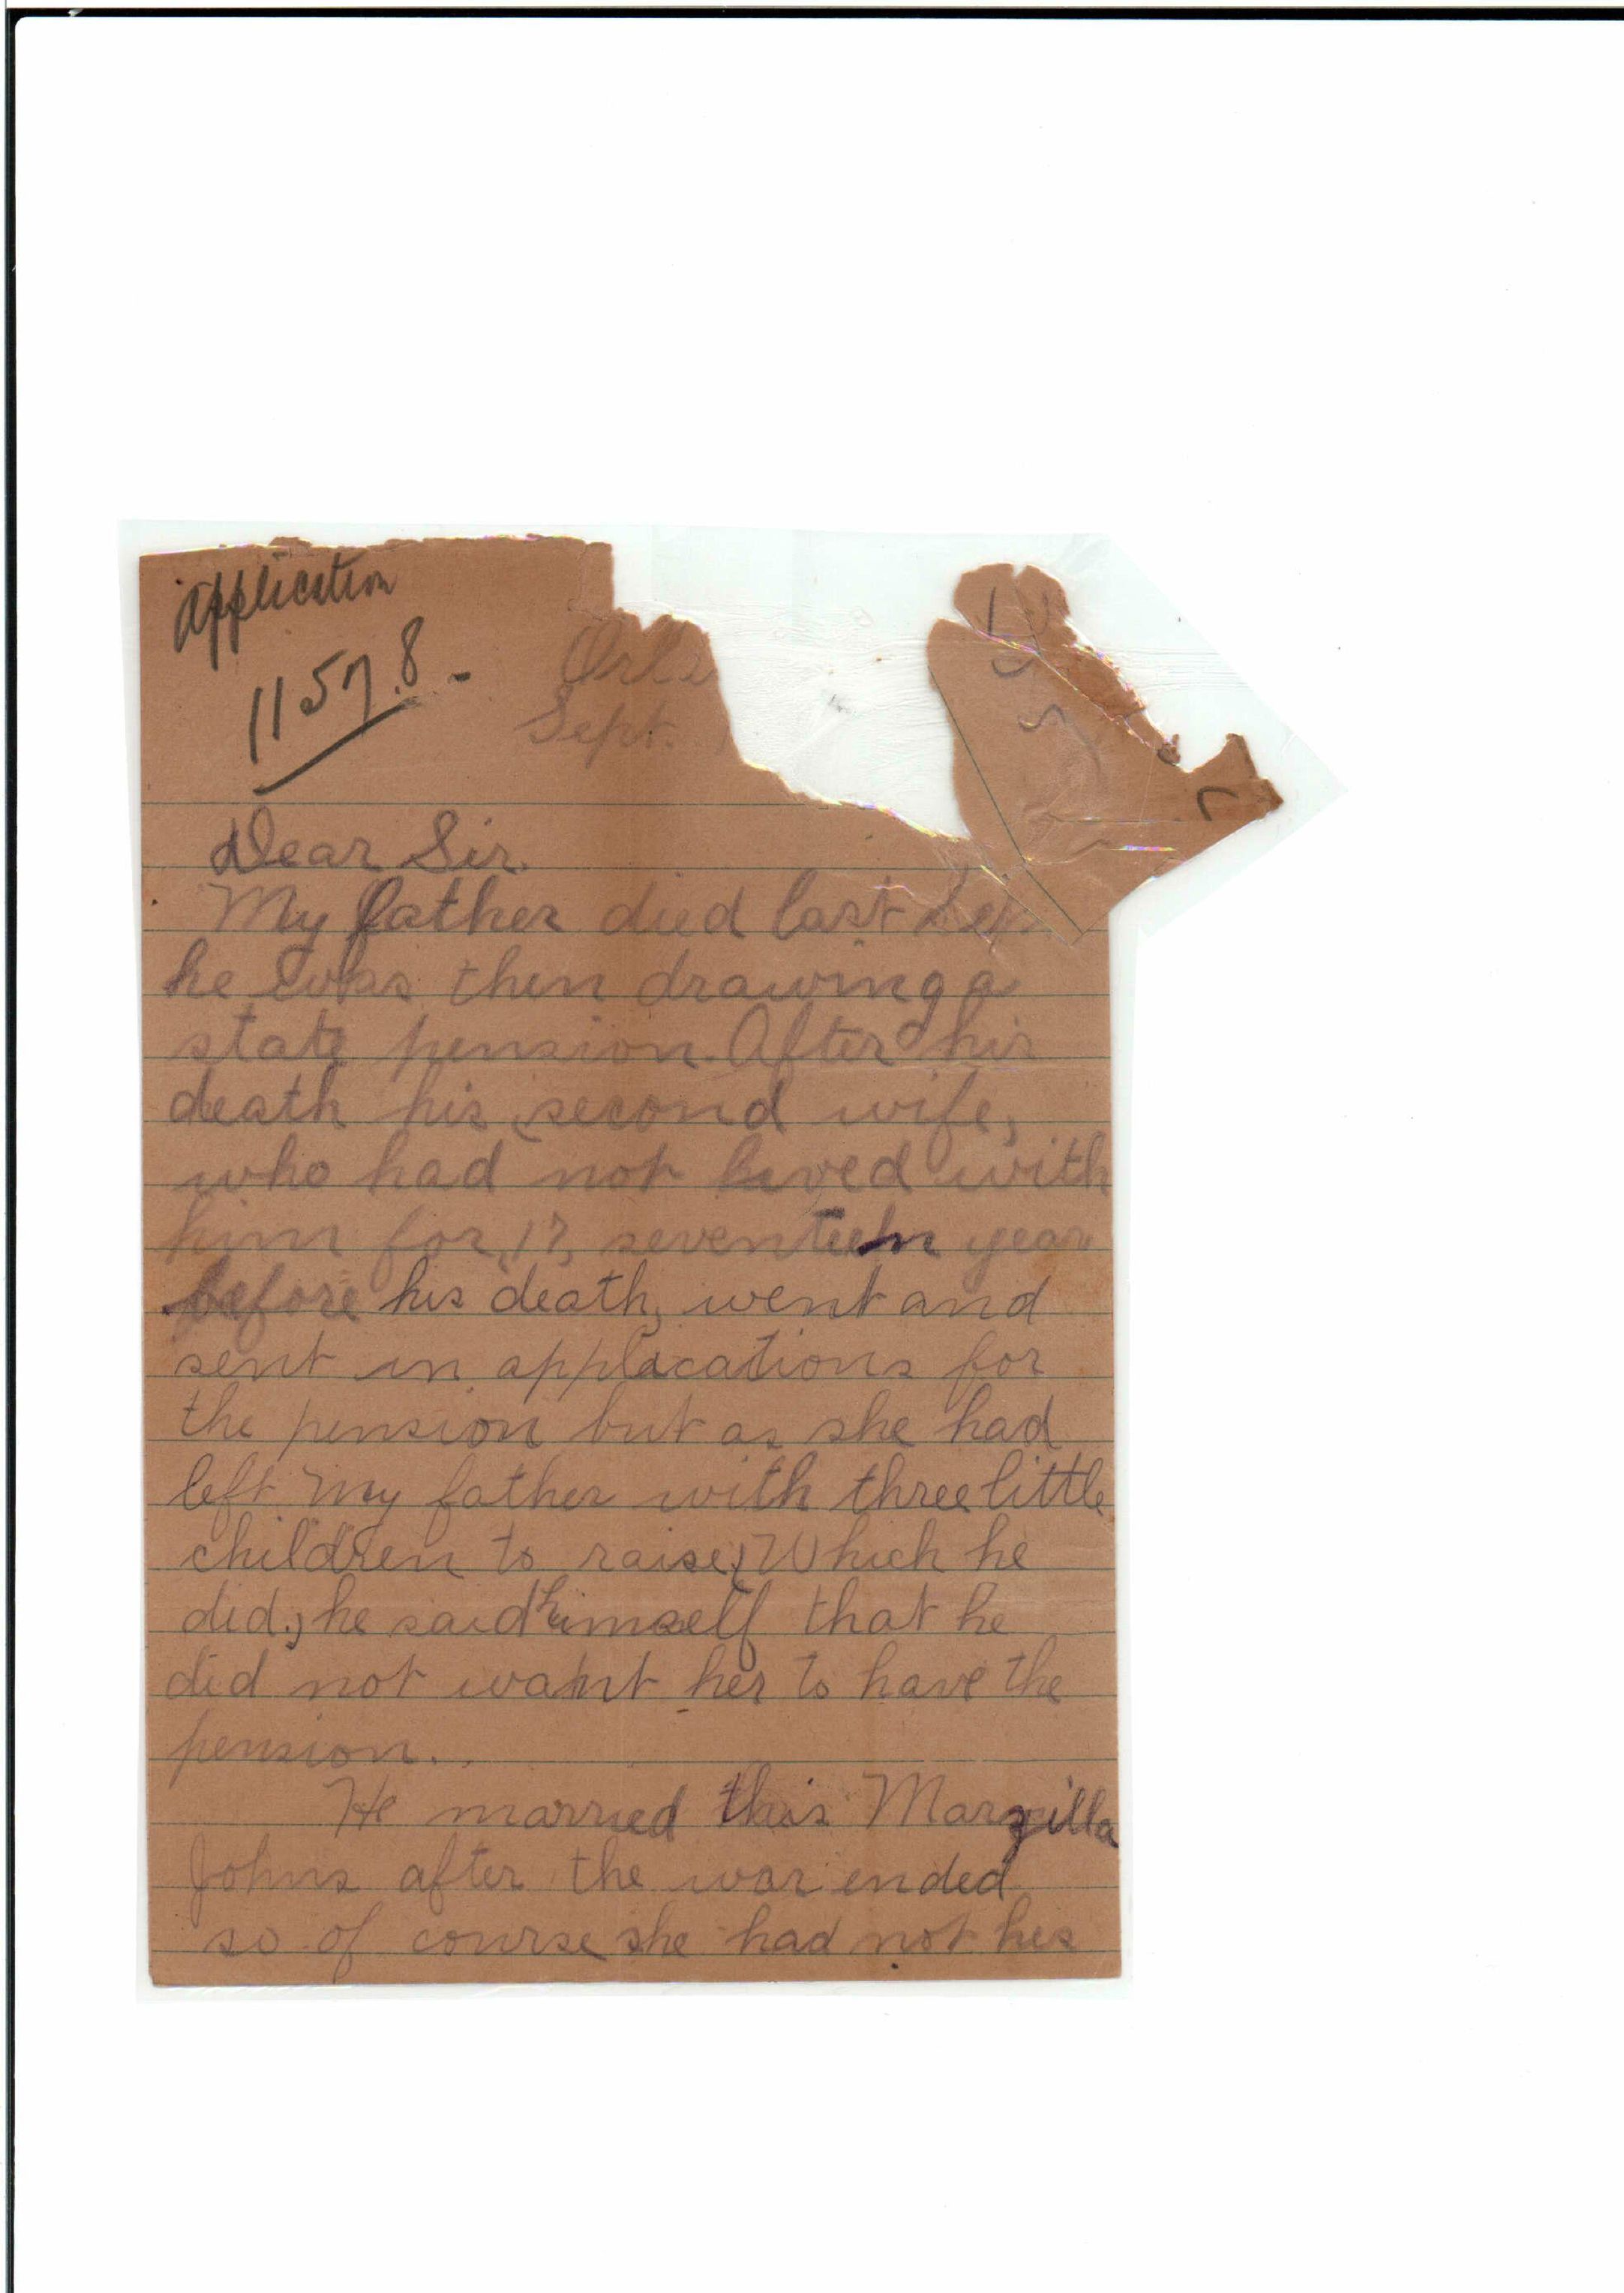 Application
11578.
Sept.
Dear Sir.
My father died last
he was then drawing a
state pension. After his
death his second wife,
who had not lived with
him for, 17, seventeen year
before his death, went and
sent in applacations for
the pension but as she had
left my father with three little
children to raise, Which he
did, he said himself that he
did not want her to have the
pension..
He married this Marzilla
Johns after the war ended
so of course she had not his